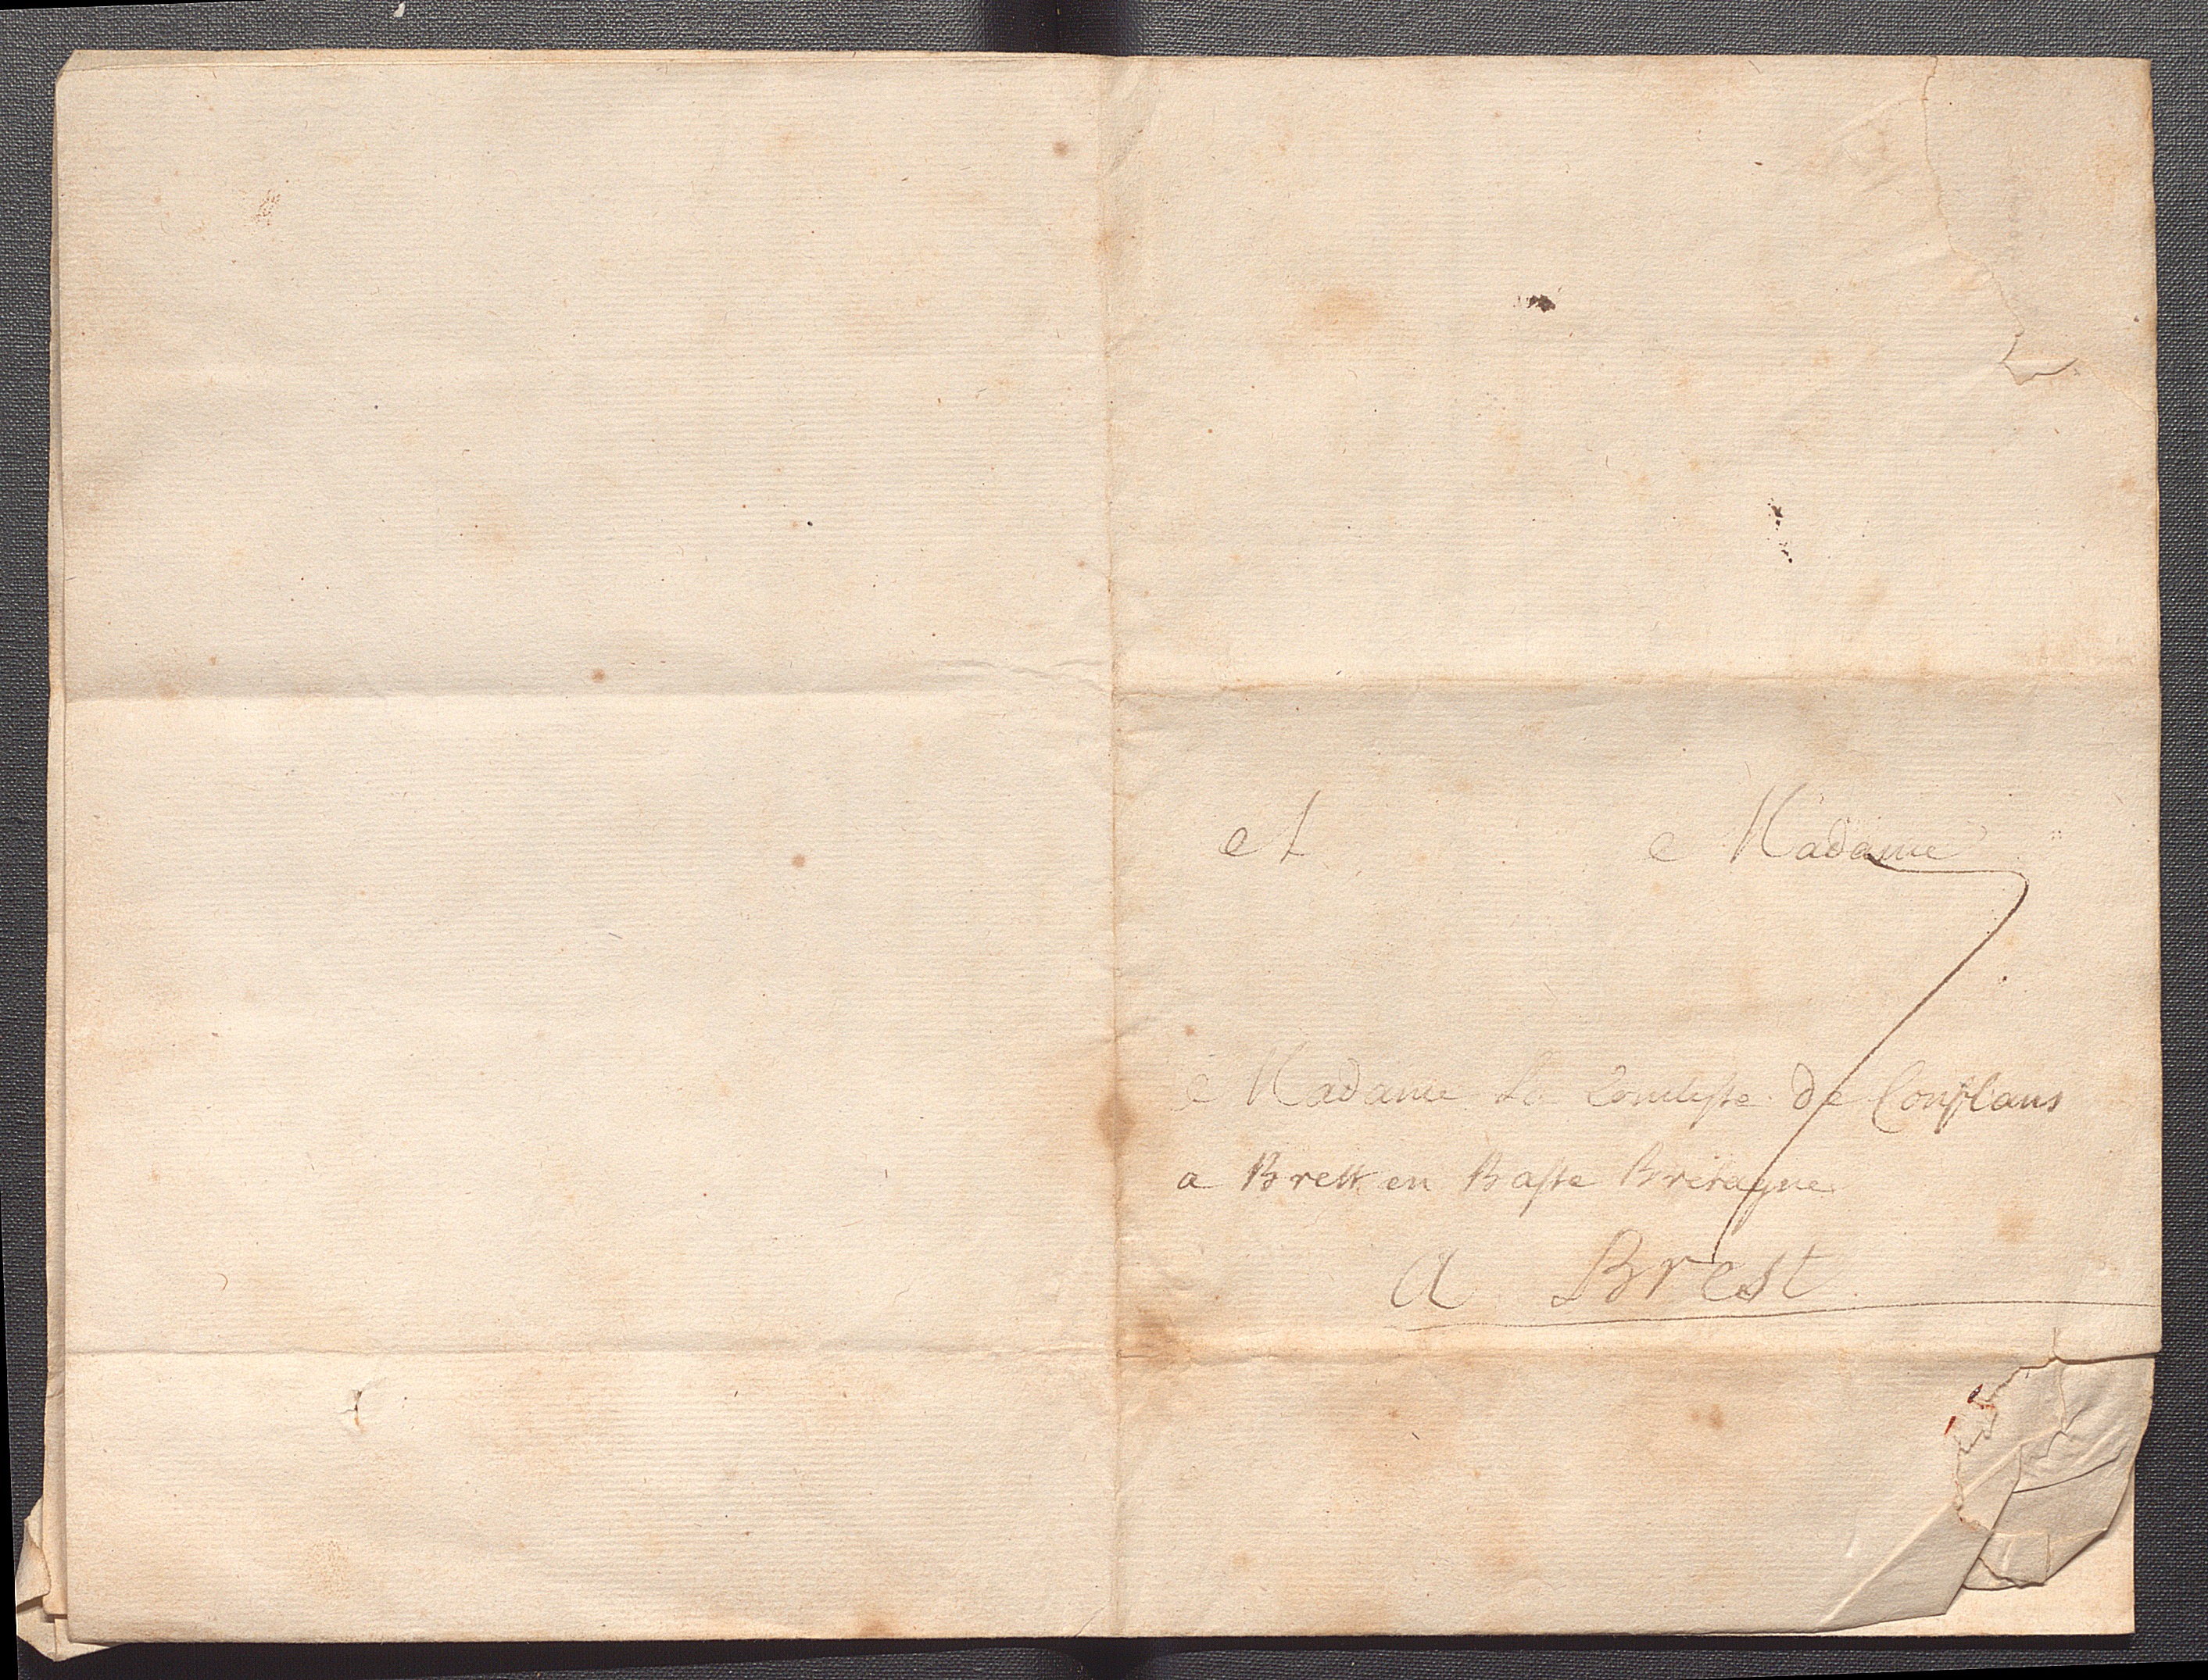 A Madame
Madame La Comtesse de Conflans
a Brest en Basse Bretagne
A Brest